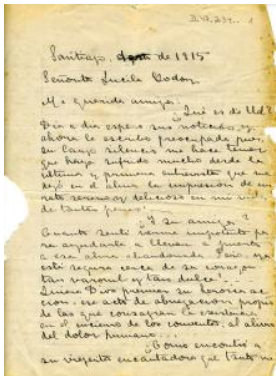 Santiago, de 1915
Señorita Lucila Godoy
Mi querida amiga:
¿Qué es de Ud?
Día a día espero sus noticias, y
ahora le escribo preocupada pues
su largo silencio me hace temer
que haya sufrido mucho desde la
última y primera entrevista que me
dejó en el alma la impresión de un
rato sereno y delicioso en mi vida
de tantas penas.
¿Y su amiga?
Cuanto sentí verme impotente pa
ra ayudarle a llevar a puerto
a esa alma abandonada. Pero, ya
está segura cerca de su corazón
tan varonil y tan dulce!
Quiera Dios premiar su heroica ac
ción, ese acto de abnegación propio
de las que consagran la existencia
en el encierro de los conventos, al alivio
del dolor humano.
¿Como encontró a
su viejecita encantadora que tanto